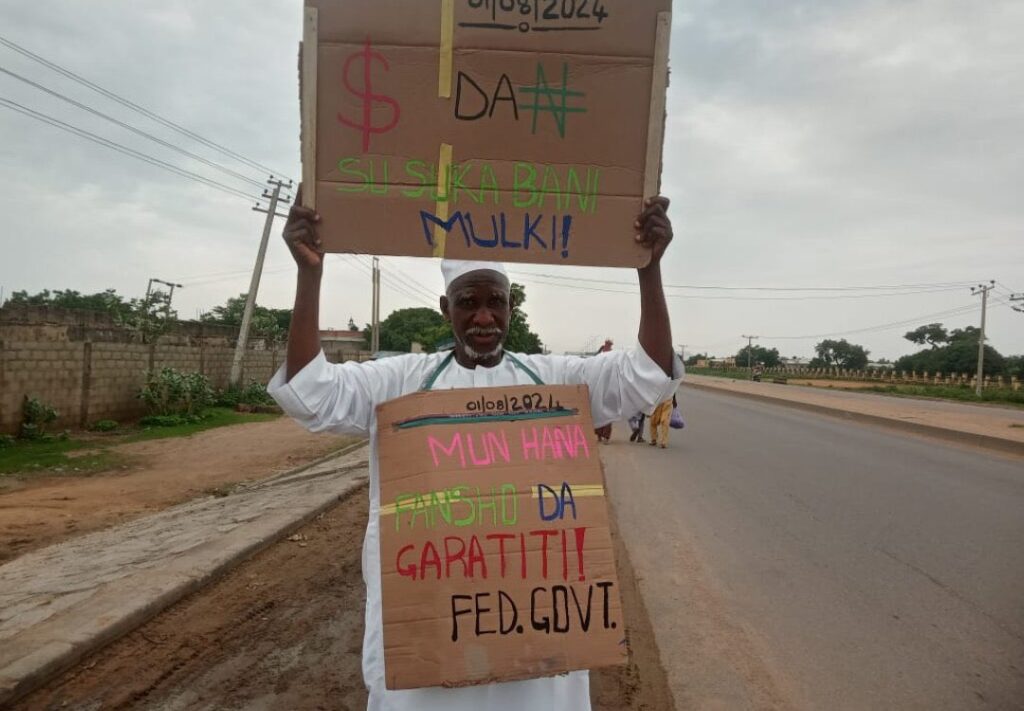 01/08/2024
$ DA ₦
SU SUKA BANI
MULKI!
01/08/2024
MUN HANA
FANSHO DA
GARATITI!
FED. GOVT.